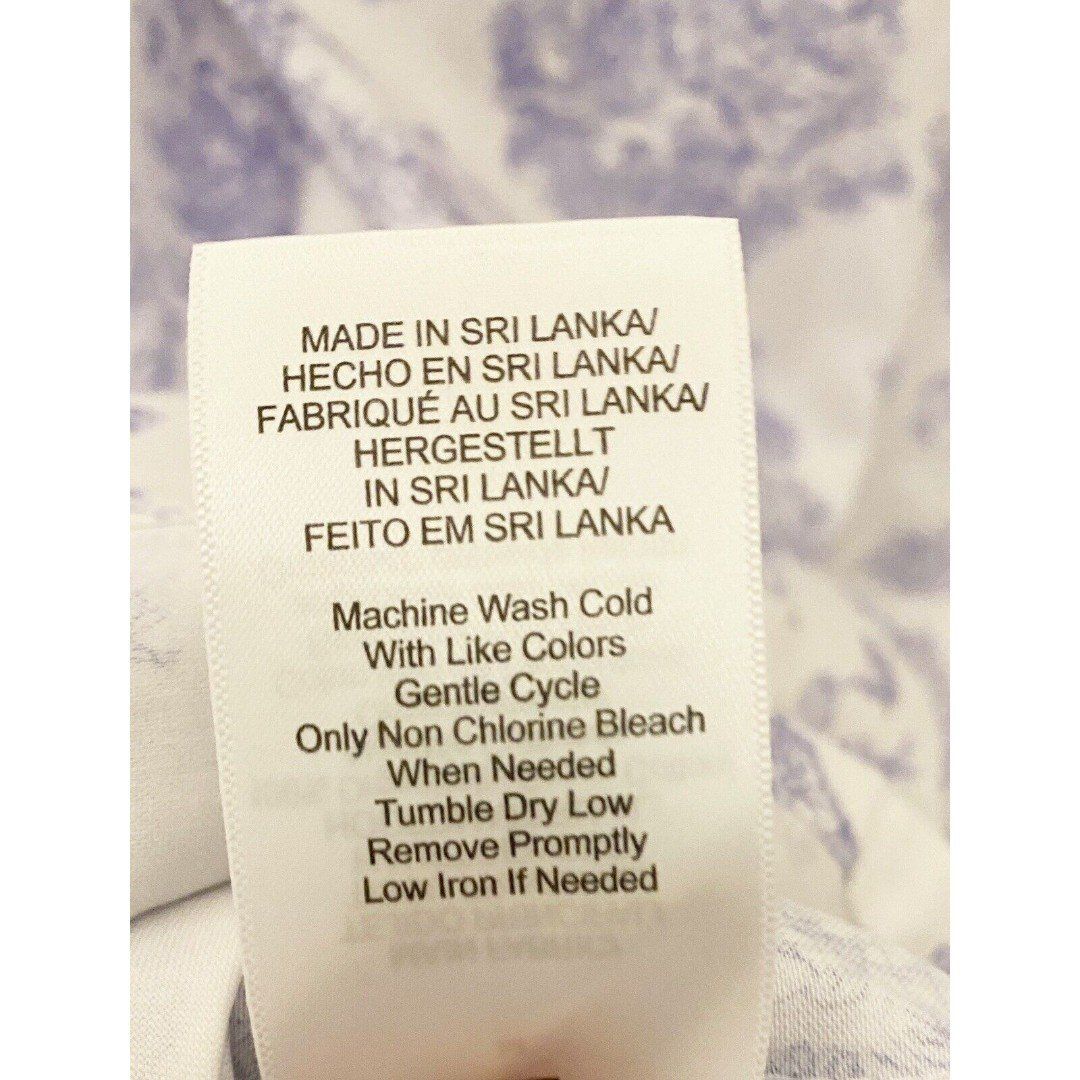 MADE IN SRI LANKA/
HECHO EN SRI LANKA/
FABRIQUÉ AU SRI LANKA/
HERGESTELLT
IN SRI LANKA/
FEITO EM SRI LANKA
Machine Wash Cold
With Like Colors
Gentle Cycle
Only Non Chlorine Bleach
When Needed
Tumble Dry Low
Remove Promptly
Low Iron If Needed